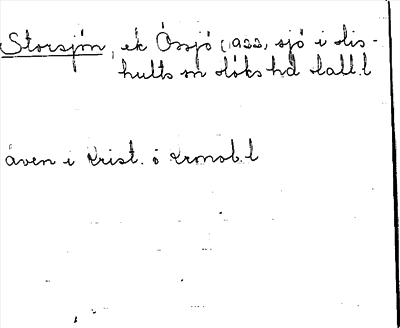 Storsjön, ek Össjö (1933), sjö i Vis-
hults sn Höks hd Hall.l
även i Krist. o Kronob.l